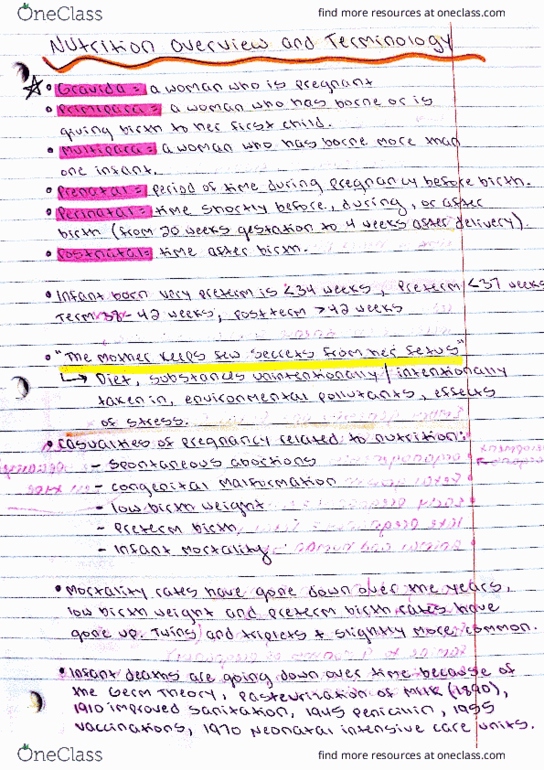 OneClass
find more resources at oneclass.com
Nutrition Overview and Terminology
• Gravida = a woman who is pregnant
• Primipara = a woman who has borne or is
giving birth to her first child.
• Multipara = a woman who has borne more than
one infant.
• Prenatal = period of time during pregnancy before birth.
• Perinatal = time shortly before, during, or after
birth (from 20 weeks gestation to 4 weeks after delivery).
• Postnatal = time after birth.
• Infant born very preterm is <34 weeks, Preterm <37 weeks
Term 38-42 weeks, Post term >42 weeks
• "The mother keeps few secrets from her fetus"
↳ Diet, substances unintentionally / intentionally
taken in, environmental pollutants, effects
of stress.
• Casualties of Pregnancy related to nutrition:
- Spontaneous abortions
- congenital malformation
- low birth weight
- Preterm birth
- Infant mortality
• Mortality rates have gone down over the years,
low birth weight and preterm birth rates have
gone up. Twins and triplets + slightly more common.
• Infant deaths are going down over time because of
the Germ Theory, Pasteurization of Milk (1890),
1910 improved sanitation, 1945 Penicillin, 1955
vaccinations, 1970 Neonatal intensive care units.
OneClass
find more resources at oneclass.com